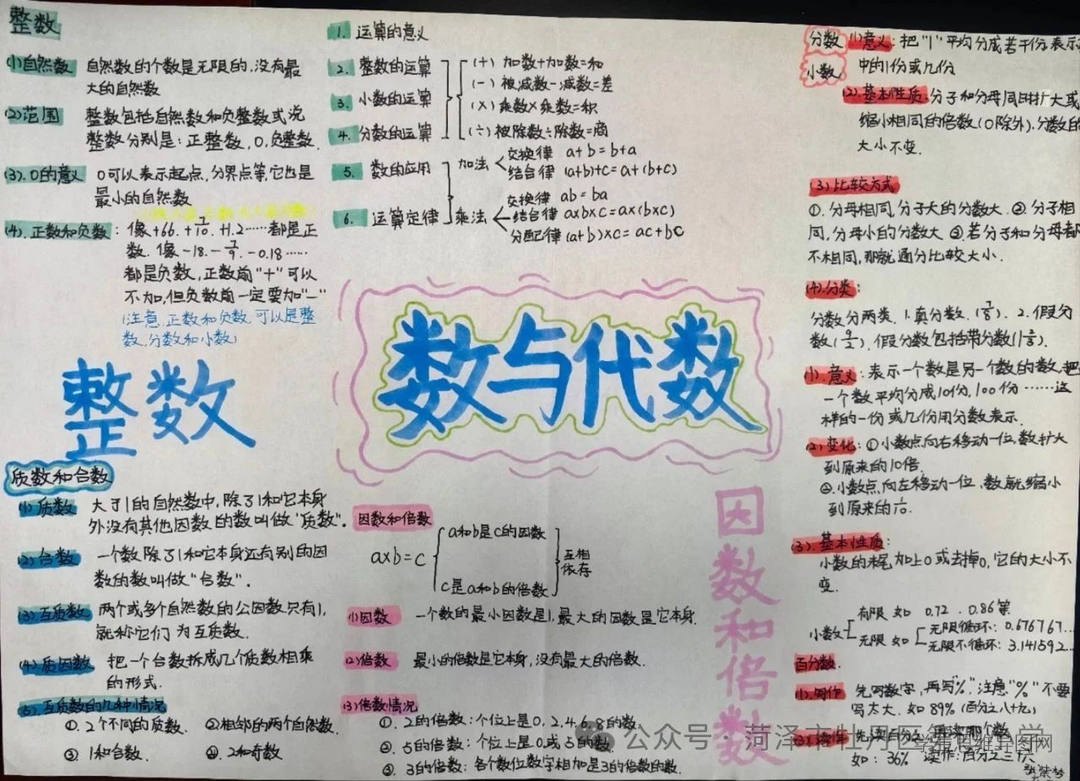 整数
(1)自然数 自然数的个数是无限的,没有最
大的自然数
(2)范围 整数包括自然数和负整数或说
整数分别是:正整数,0,负整数.
(3).0的意义 0可以表示起点,分界点等,它也是
最小的自然数
(4).正数和负数: 像+66.+7/10.+1.2……都是正
数.像-18.-7/9.-0.18……
都是负数,正数前"+"可以
不加,但负数前一定要加"-"
(注意.正数和负数,可以是整
数,分数和小数)
整数
质数和合数
(1)质数 大于1的自然数中,除了1和它本身
外没有其他因数的数叫做"质数".
(2)合数 一个数,除了1和它本身还有别的因
数的数叫做"合数".
(3)互质数 两个或多个自然数的公因数只有1,
就称它们为互质数.
(4)质因数 把一个合数拆成几个质数相乘
的形式.
(5)互质数的几种情况
①.2个不同的质数. ②相邻的两个自然数.
③.1和合数. ④.2和奇数
1. 运算的意义
2. 整数的运算
3. 小数的运算
4. 分数的运算
(+)加数+加数=和
(-)被减数-减数=差
(×)乘数×乘数=积
(÷)被除数÷除数=商
5. 数的应用
6. 运算定律
加法
交换律 a+b=b+a
结合律 (a+b)+c=a+(b+c)
乘法
交换律 ab=ba
结合律 a×b×c=a×(b×c)
分配律 (a+b)×c=ac+bc
数与代数
因数和倍数
a×b=c
a和b是c的因数
c是a和b的倍数
互相
依存
(1)因数 一个数的最小因数是1,最大的因数是它本身.
(2)倍数 最小的倍数是它本身,没有最大的倍数.
(3)倍数情况
①.2的倍数:个位上是0,2,4,6,8的数.
②.5的倍数:个位上是0或5的数.
③.3的倍数:各个数位数字相加是3的倍数的数.
因数和倍数
分数
小数
(1)意义:把"1"平均分成若干份表示
中的1份或几份
(2).基本性质:分子和分母同时扩大或
缩小相同的倍数(0除外).分数的
大小不变.
(3)比较方式
①.分母相同,分子大的分数大.②.分子相
同,分母小的分数大 ③.若分子和分母都
不相同,那就通分比较大小.
(4).分类:
分数分两类.1.真分数.(7/8).2.假分
数(9/2).假分数包括带分数(1 1/8).
(1).意义:表示一个数是另一个数的数,把
一个数平均分成10份,100份……这
样的一份或几份用分数表示.
(2).变化:①小数点向右移动一位,数扩大
到原来的10倍.
②.小数点向左移动一位,数就缩小
到原来的1/10.
(3).基本性质:
小数的末尾加上0或去掉0,它的大小不
变.
小数
有限 如 0.72.0.86等
无限 如
无限循环:0.676767...
无限不循环:3.141592...
百分数.
(1).写作 先写数字,再写"%".注意"%"不要
写太大.如89%(百分之八十九)
(2).读作 先读百分之,再读那个数
如:36% 读作:百分之三十六
公众号·菏泽市牡丹区